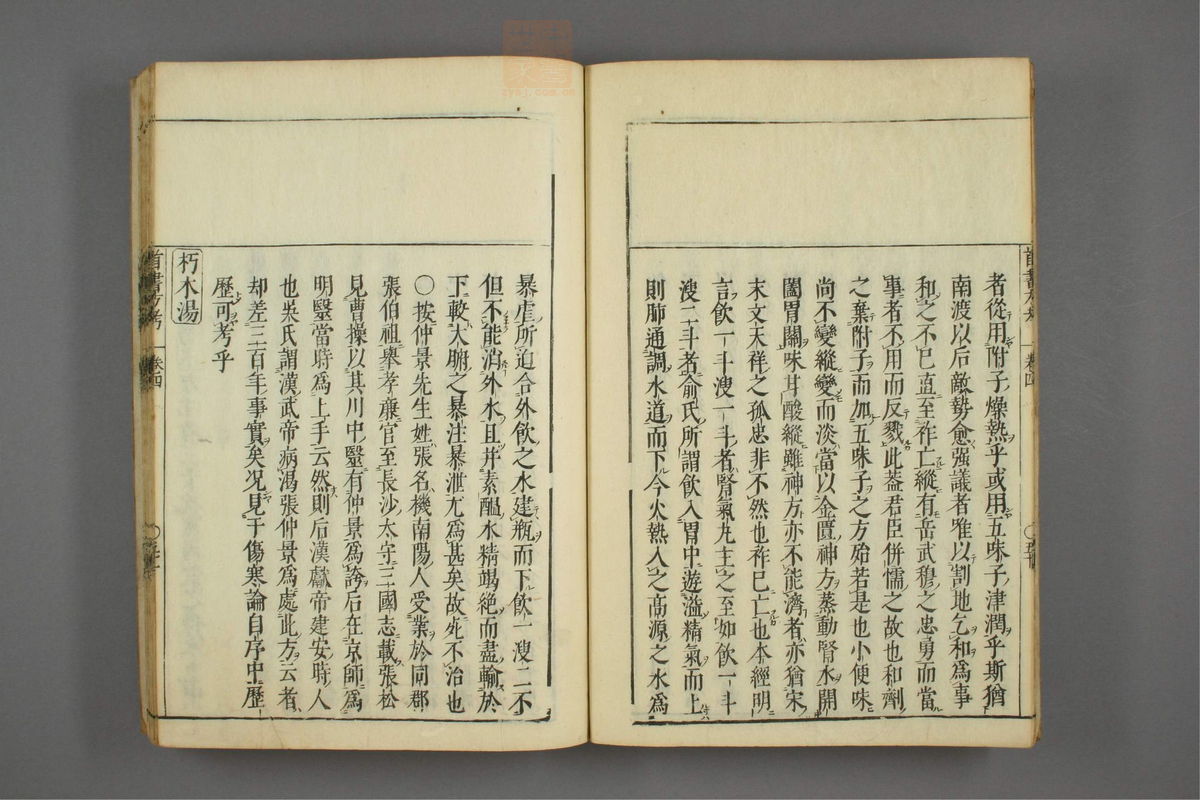 者從用附子燥熱乎或用五味子津潤乎斯猶
南渡以后敵勢愈强議者唯以割地乞和為事
和之不已直至祚亡縱有岳武穆之忠勇而當
事者不用而反戮此葢君臣併懦之故也和劑
之棄附子而加五味子之方殆若是也小便味
尚不變縱變而淡當以金匱神方蒸動腎水開
闔胃關味甘酸縱雖神方亦不能濟者亦猶宋
末文天祥之孤忠非不然也祚已亡也本經明
言飲一斗溲一斗者腎氣丸主之至如飲一斗
溲二斗者俞氏所謂飲入胃中遊溢精氣而上
則肺通調水道而下今火熱入之高源之水為
首書方考 卷四
暴虐所迫合外飲之水建瓶而下飲一溲二不
但不能消外水且并素醖水精竭絶而盡輸於
下較大腑之暴注暴泄尤為甚矣故死不治也
○按仲景先生姓張名機南陽人受業於同郡
張伯祖舉孝廉官至長沙太守三國志載張松
見曹操以其川中毉有仲景為誇后在京師為
明毉當時為上手云然則后漢獻帝建安時人
也吳氏謂漢武帝病渴張仲景為處此方云者
却差三百年事實矣况見于傷寒論自序中歷
歷可考乎
朽木湯
首書方考 卷四